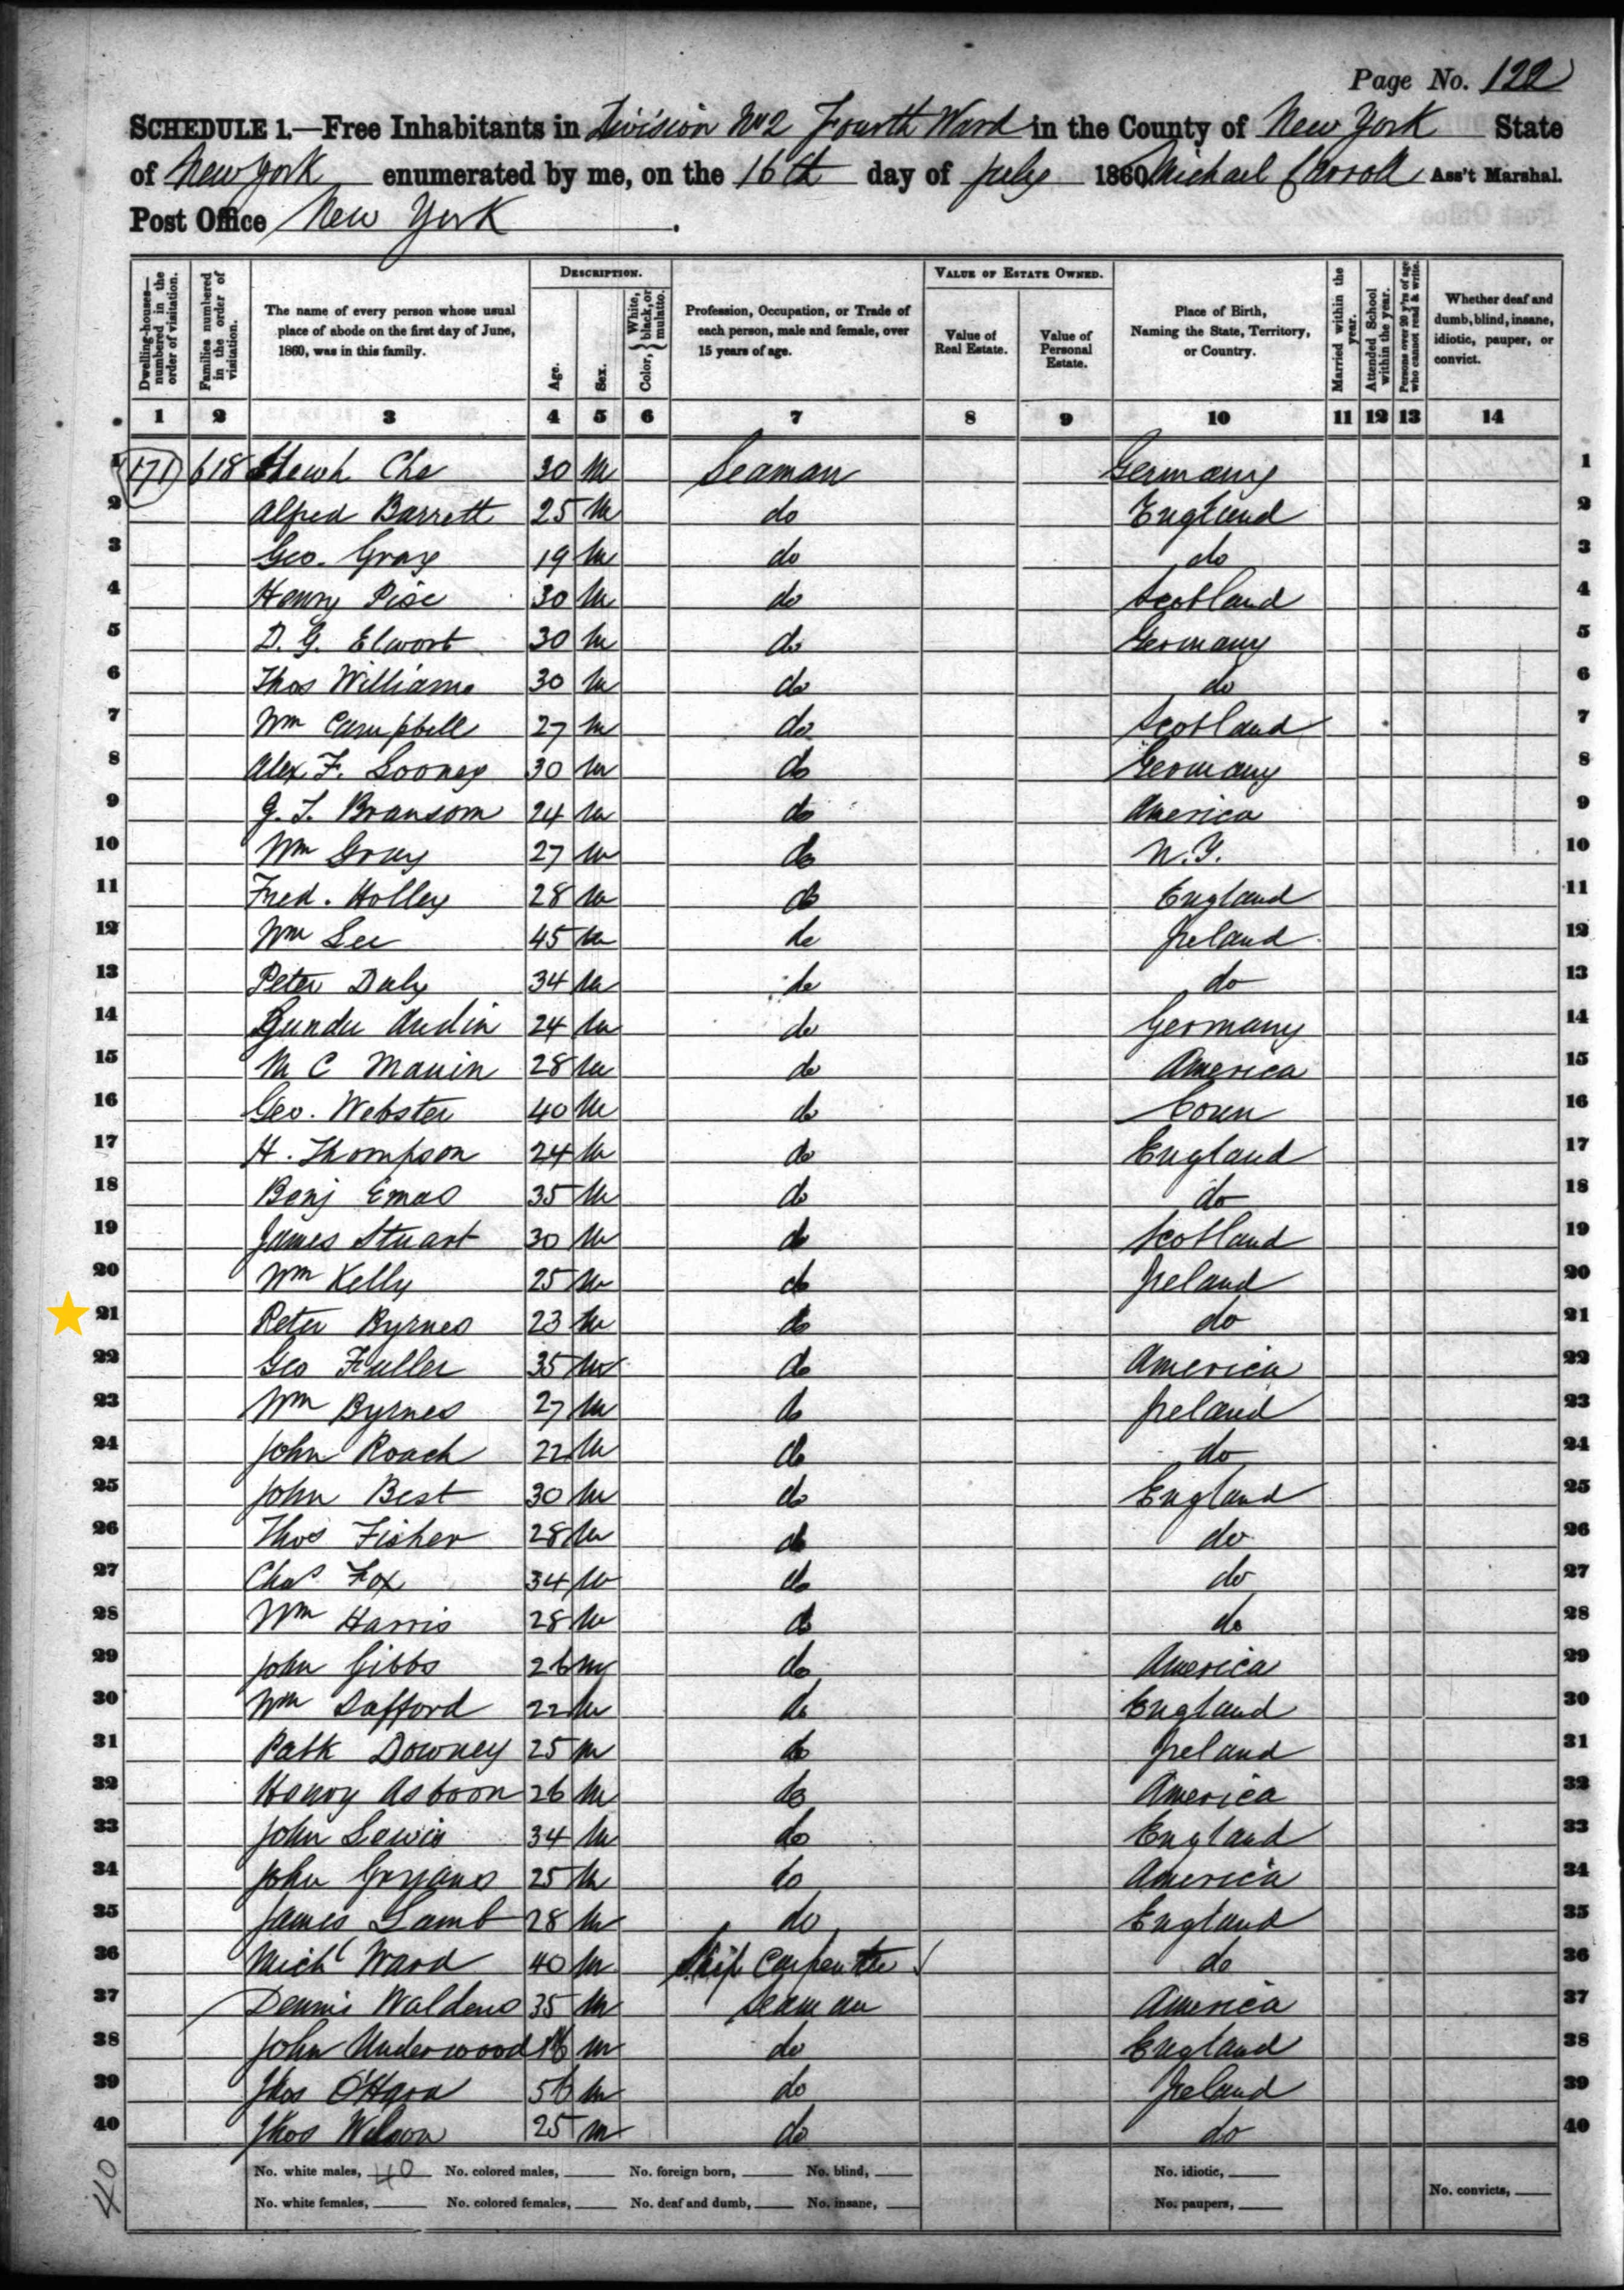 Page No. 122
SCHEDULE 1.—Free Inhabitants in Division No 2 Fourth Ward in the County of New York State
of New York enumerated by me, on the 16th day of July 1860. Michael Carroll Ass't Marshal.
Post Office New York.
Dwelling-houses—numbered in the order of visitation.
Families numbered in the order of visitation.
The name of every person whose usual place of abode on the first day of June, 1860, was in this family.
DESCRIPTION.
Age.
Sex.
Color, { White, black, or mulatto.
Profession, Occupation, or Trade of each person, male and female, over 15 years of age.
VALUE OF ESTATE OWNED.
Value of Real Estate.
Value of Personal Estate.
Place of Birth, Naming the State, Territory, or Country.
Married within the year.
Attended School within the year.
Persons over 20 y'rs of age who cannot read & write.
Whether deaf and dumb, blind, insane, idiotic, pauper, or convict.
1 2 3 4 5 6 7 8 9 10 11 12 13 14
1 171 618 Che 30 M Seaman Germany 1
2 Alfred Barrett 25 M do England 2
3 Geo. Gray 19 M do do 3
4 Henry Pise 30 M do Scotland 4
5 D. G. Elwort 30 M do Germany 5
6 Thos Williams 30 M do do 6
7 Wm Campbell 27 M do Scotland 7
8 Alex F. Looney 30 M do Germany 8
9 G. T. Bransom 24 M do America 9
10 Wm Gray 27 M do N.Y. 10
11 Fred. Holley 28 M do England 11
12 Wm Lee 45 M do Ireland 12
13 Peter Daly 34 M do do 13
14 24 M do Germany 14
15 M C Manin 28 M do America 15
16 Geo. Webster 40 M do Conn 16
17 H. Thompson 24 M do England 17
18 Benj Emas 35 M do do 18
19 James Stuart 30 M do Scotland 19
20 Wm Kelly 25 M do Ireland 20
21 Peter Byrnes 23 M do do 21
22 Geo Fuller 35 M do America 22
23 Wm Byrnes 27 M do Ireland 23
24 John Roach 22 M do do 24
25 John Best 30 M do England 25
26 Thos Fisher 28 M do do 26
27 Chas Fox 34 M do do 27
28 Wm Harris 28 M do do 28
29 John Gibbs 26 M do America 29
30 Wm Safford 22 M do England 30
31 Patk Downey 25 M do Ireland 31
32 Henry Asboon 26 M do America 32
33 John Lewis 34 M do England 33
34 John 25 M do America 34
35 James Lamb 28 M do England 35
36 Michl Ward 40 M Ship Carpenter do 36
37 Dennis Waldens 35 M Seaman America 37
38 John Underwood 16 M do England 38
39 Thos O'Hara 56 M do Ireland 39
40 Thos Wilson 25 M do do 40
40
No. white males, 40 No. colored males, No. foreign born, No. blind, No. idiotic,
No. white females, No. colored females, No. deaf and dumb, No. insane, No. paupers, No. convicts,